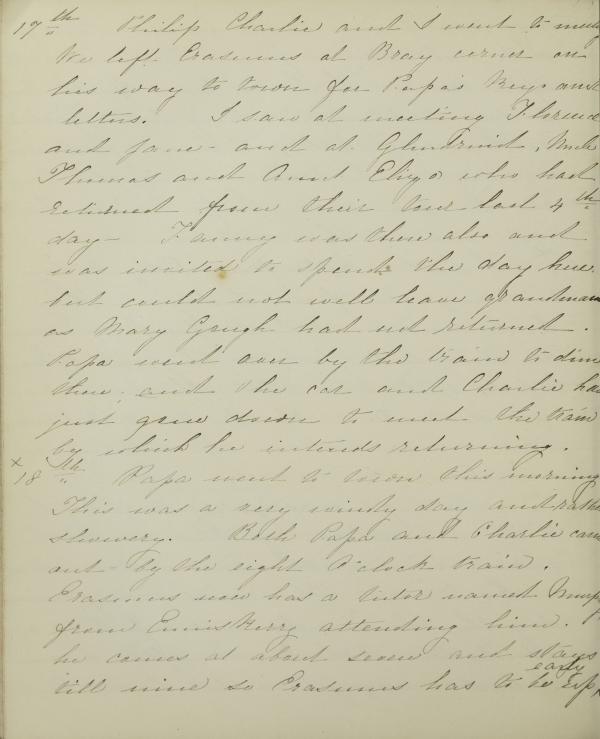 17th Philip Charlie and I went to meeting
We left Erasmus at Bray corner on
his way to town for Papa's keys and
letters. I saw at meeting
and Jane - and at Glendruid, Uncle
Thomas and Aunt Eliza who had
returned from their tour last 4th
day - Fanny was there also and
was invited to spend the day here
but could not well leave grandmama
as Mary Gough had not returned.
Papa went over by the train to dine
there, and the car and Charlie has
just gone down to meet the train
by which he intends returning.
x 18th Papa went to town this morning
This was a very windy day and rather
showery. Both Papa and Charlie came
out by the eight O'clock train.
Erasmus now has a tutor named
from Enniskerry attending him.
he comes at about seven and stays
till nine so Erasmus has to be early up